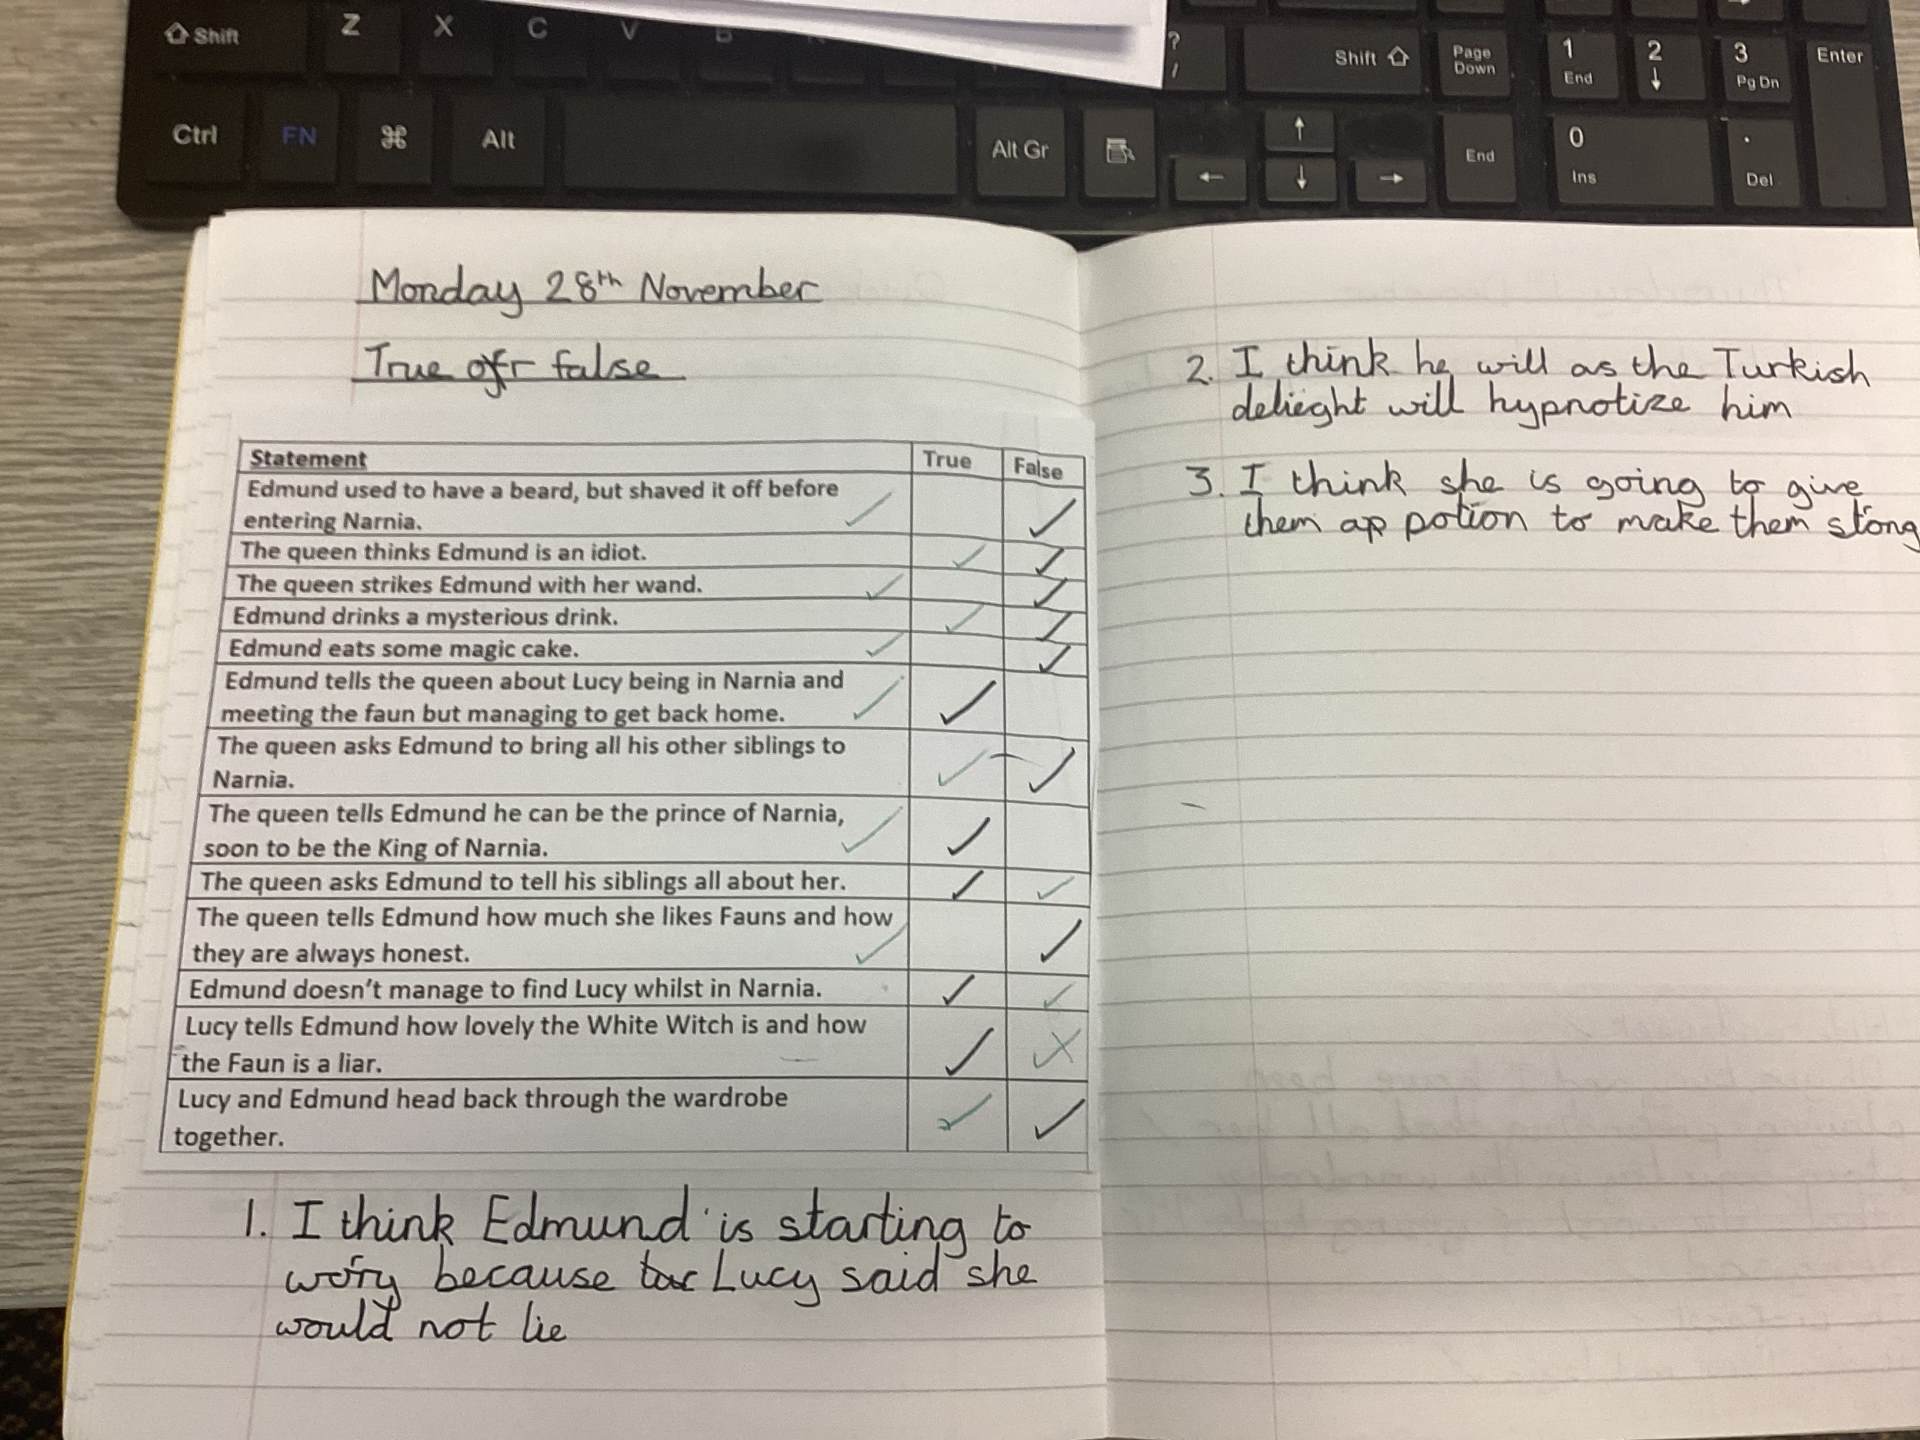 Shift
Z
X
C
V
B
?
/
Shift
Page
Down
1
End
2
3
Pg Dn
Enter
Ctrl
FN
Alt
Alt Gr
End
0
Ins
.
Del
Monday 28th November
True or false
Statement True False
Edmund used to have a beard, but shaved it off before
entering Narnia.
The queen thinks Edmund is an idiot.
The queen strikes Edmund with her wand.
Edmund drinks a mysterious drink.
Edmund eats some magic cake.
Edmund tells the queen about Lucy being in Narnia and
meeting the faun but managing to get back home.
The queen asks Edmund to bring all his other siblings to
Narnia.
The queen tells Edmund he can be the prince of Narnia,
soon to be the King of Narnia.
The queen asks Edmund to tell his siblings all about her.
The queen tells Edmund how much she likes Fauns and how
they are always honest.
Edmund doesn't manage to find Lucy whilst in Narnia.
Lucy tells Edmund how lovely the White Witch is and how
the Faun is a liar.
Lucy and Edmund head back through the wardrobe
together.
1. I think Edmund is starting to
worry because Lucy said she
would not lie
2. I think he will as the Turkish
delieght will hypnotize him
3. I think she is going to give
them a potion to make them stong